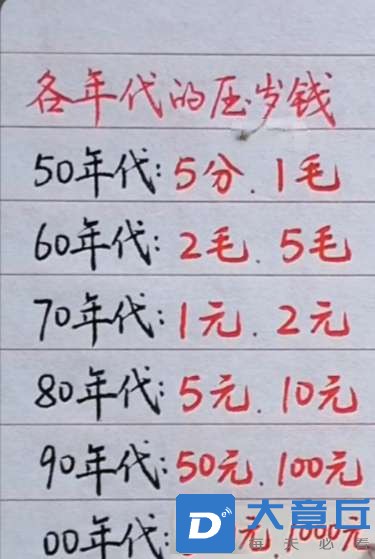 各年代的压岁钱
50年代:5分.1毛
60年代:2毛.5毛
70年代:1元.2元
80年代:5元.10元
90年代:50元.100元
00年代: 元.1000元
D 大章丘
每天必看